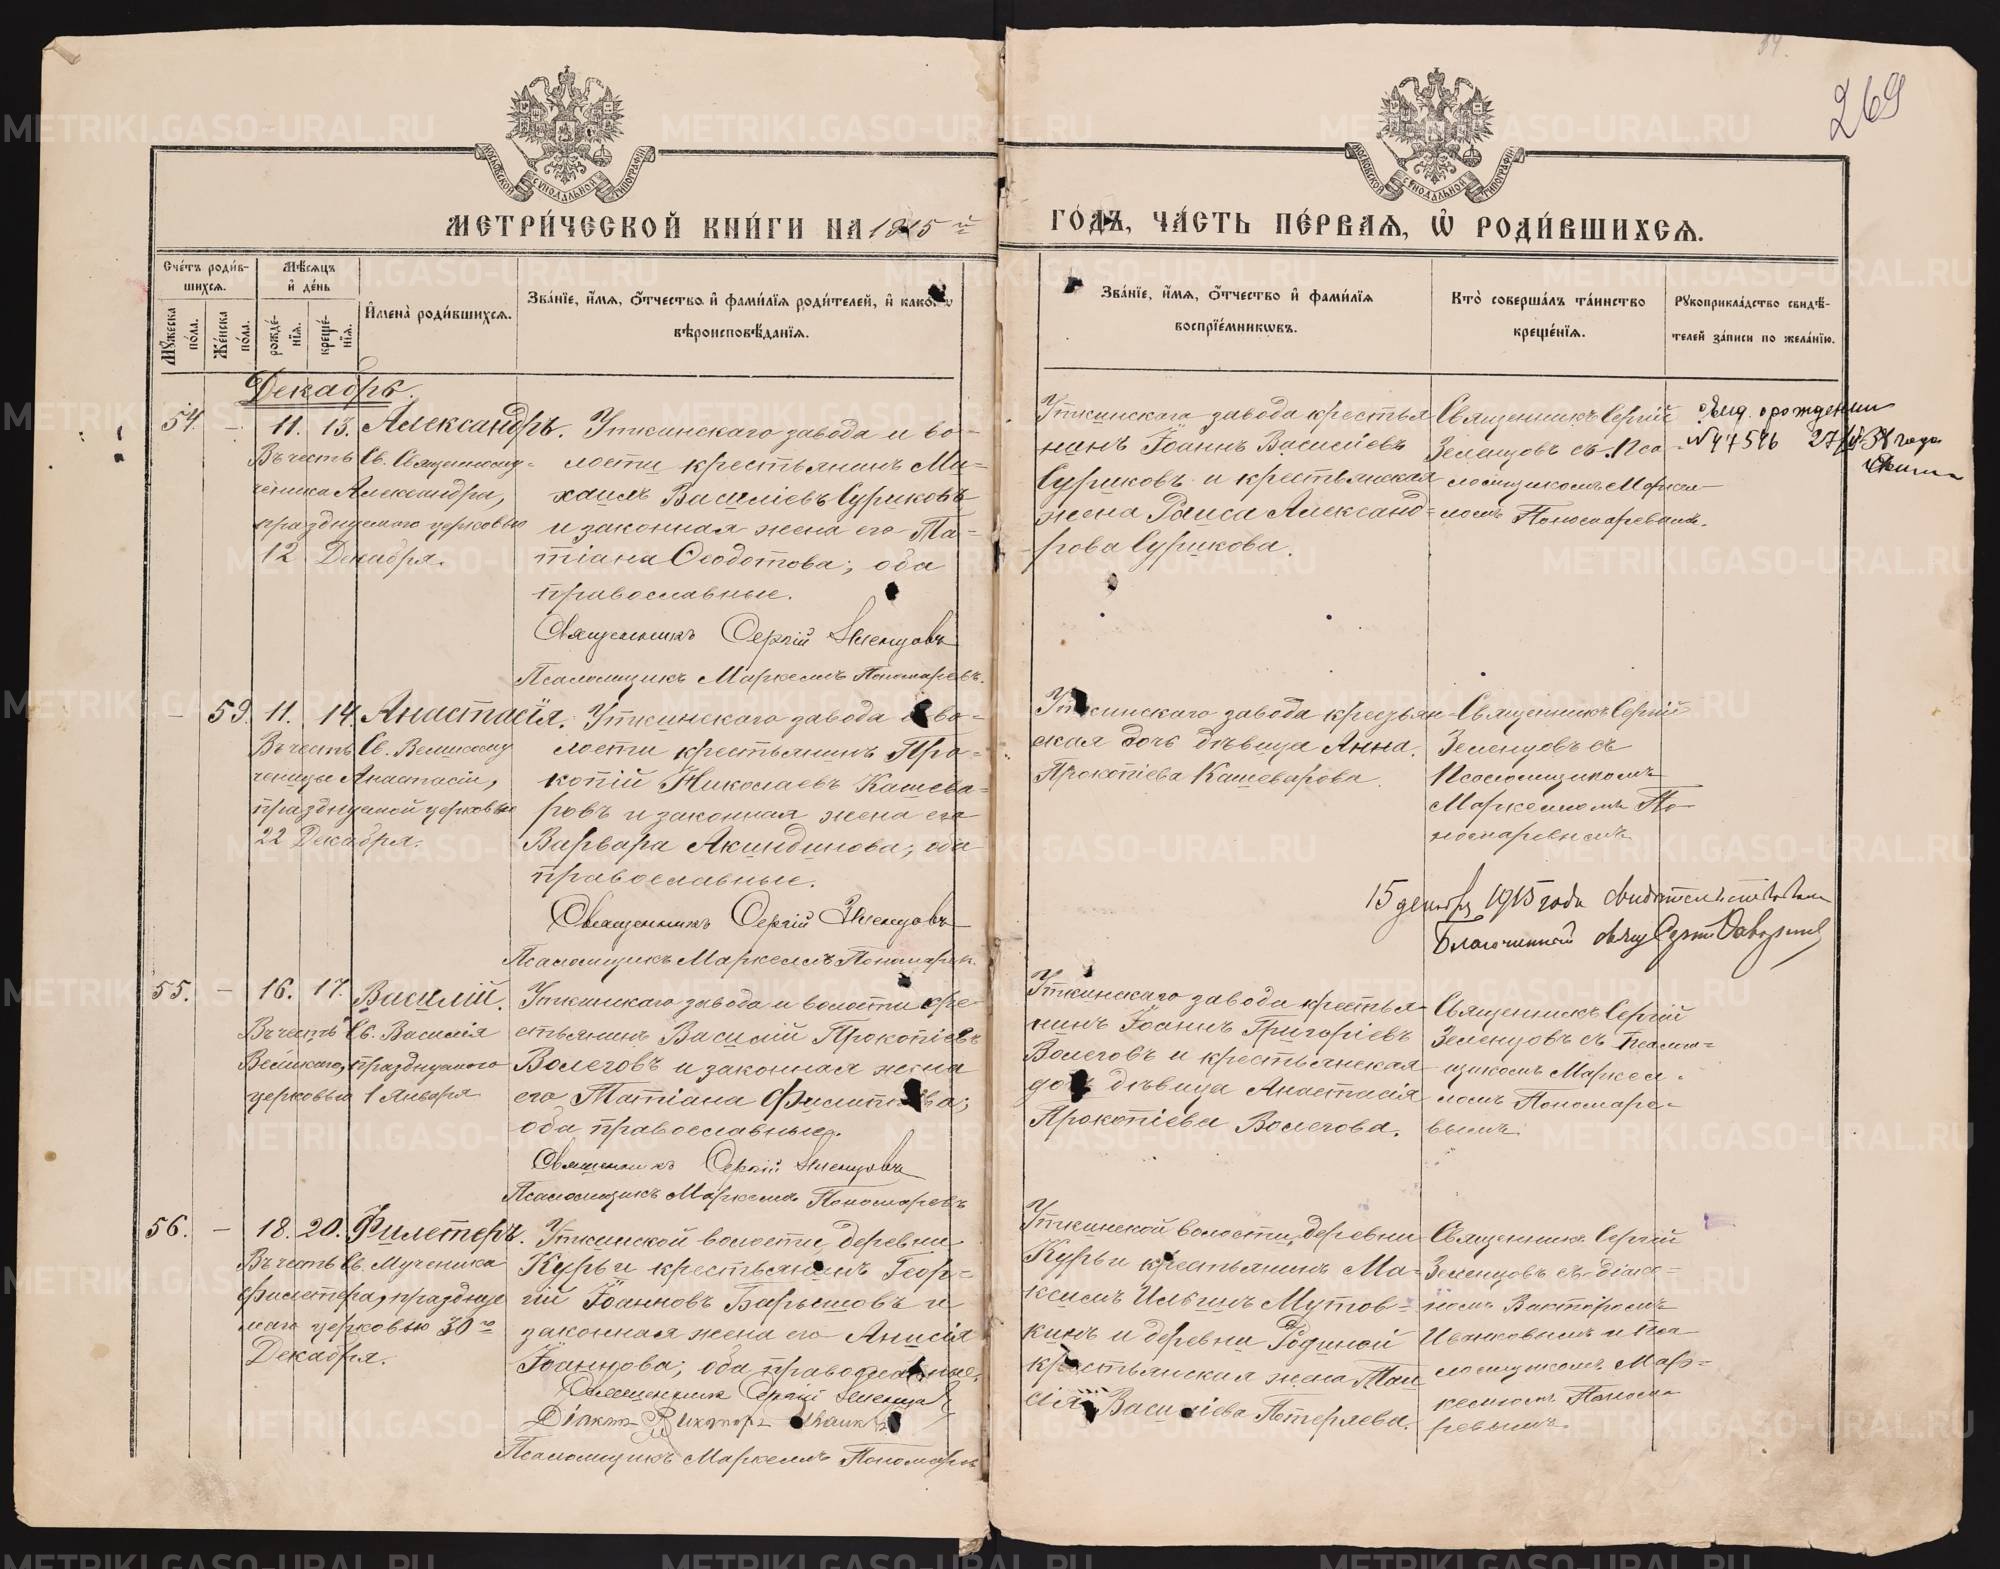 269
МОСКОВСКОЙ СѴНОДАЛЬНОЙ ТИПОГРАФІИ
МОСКОВСКОЙ СѴНОДАЛЬНОЙ ТИПОГРАФІИ
МЕТРИ́ЧЕСКОЙ КНИ́ГИ НА 1915 й
ГО́ДЪ, ЧА́СТЬ ПЕ́РВАѦ, Ѡ҆ РОДИ́ВШИХСѦ.
Сче́тъ роди́в-
шихсѧ.
Мꙋ́жеска по́ла.
Же́нска по́ла.
Мѣ́сѧцъ и҆ де́нь
рожде́-
нїѧ.
креще́-
нїѧ.
И҆мена̀ роди́вшихсѧ.
Зва́нїе, и҆́мѧ, ѻ҆́тчество и҆ фами́лїѧ роди́телей, и҆ како́гѡ
вѣроисповѣ́данїѧ.
Зва́нїе, и҆́мѧ, ѻ҆́тчество и҆ фами́лїѧ
воспрїе́мникѡвъ.
Кто̀ соверша́лъ та́инство
креще́нїѧ.
Рꙋкоприкла́дство свидѣ́-
телей за́писи по жела́нїю.
Декабрь.
54. - 11. 13. Александръ.
Въ честь Св. Священному-
ченика Александра,
празднуемого церковью
12 Декабря.
Уткинскаго завода и во-
лости крестьянинъ Ми-
хаилъ Василіевъ Суриковъ
и законная жена его Та-
тіана Ѳеодотова; оба
православные.
Священникъ Сергій Зеленцовъ
Псаломщикъ Маркеллъ Пономаревъ.
Уткинскаго завода крестья-
нинъ Іоаннъ Василіевъ
Суриковъ и крестьянская
жена Раиса Александ-
рова Сурикова.
Священникъ Сергій
Зеленцовъ съ Пса-
ломщикомъ Маркел-
ломъ Пономаревымъ.
о рождении
№ 47546 27/ 38 года
- 59. 11. 14 Анастасія.
Въ честь Св. Великому-
ченицы Анастасіи,
празднуемой церковью
22 Декабря.
Уткинскаго завода и во-
лости крестьянинъ Про-
копій Николаевъ Кашева-
ровъ и законная жена его
Варвара Акиндинова; оба
православные.
Священникъ Сергій Зеленцовъ
Псаломщикъ Маркеллъ Пономарев.
Уткинскаго завода крестьян-
ская дочь дѣвица Анна
Прокопіева Кашеварова.
Священникъ Сергій
Зеленцовъ съ
Псаломщикомъ
Маркелломъ По-
номаревымъ
15 декабря 1915 года
Благочинный свящ Сергій
55. - 16. 17. Василій.
Въ честь Св. Василія
Великаго, празднуемого
церковью 1 Января
Уткинскаго завода и волости кре-
стьянинъ Василій Прокопіевъ
Волеговъ и законная жена
его Татіана Филиппова;
оба православные.
Священникъ Сергій Зеленцовъ
Псаломщикъ Маркеллъ Пономаревъ
Уткинскаго завода крестья-
нинъ Іоаннъ Григоріевъ
Волеговъ и крестьянская
дочь дѣвица Анастасія
Прокопіева Волегова.
Священникъ Сергій
Зеленцовъ съ Псалом-
щикомъ Маркел-
ломъ Пономаре-
вымъ
56. - 18. 20. Филетеръ.
Въ честь Св. Мученика
Филетера, праздную
маго церковью 30го
Декабря.
Уткинской волости, деревни
Курьи крестьянинъ Геор-
гій Іоанновъ Барышовъ и
законная жена его Анисія
Іоаннова; оба православные.
Священникъ Сергій Зеленцов
Діаконъ Викторъ Иванков
Псаломщикъ Маркеллъ Пономарев
Уткинской волости, деревни
Курьи крестьянинъ Ма-
ксимъ Ильинъ Мутов-
кинъ и деревни Родиной
крестьянская жена Таи
сія Василіева Потеряева.
Священникъ Сергій
Зеленцовъ съ діако-
номъ Викторомъ
Иванковымъ и Пса
ломщикомъ Мар-
келломъ Понома
ревымъ.